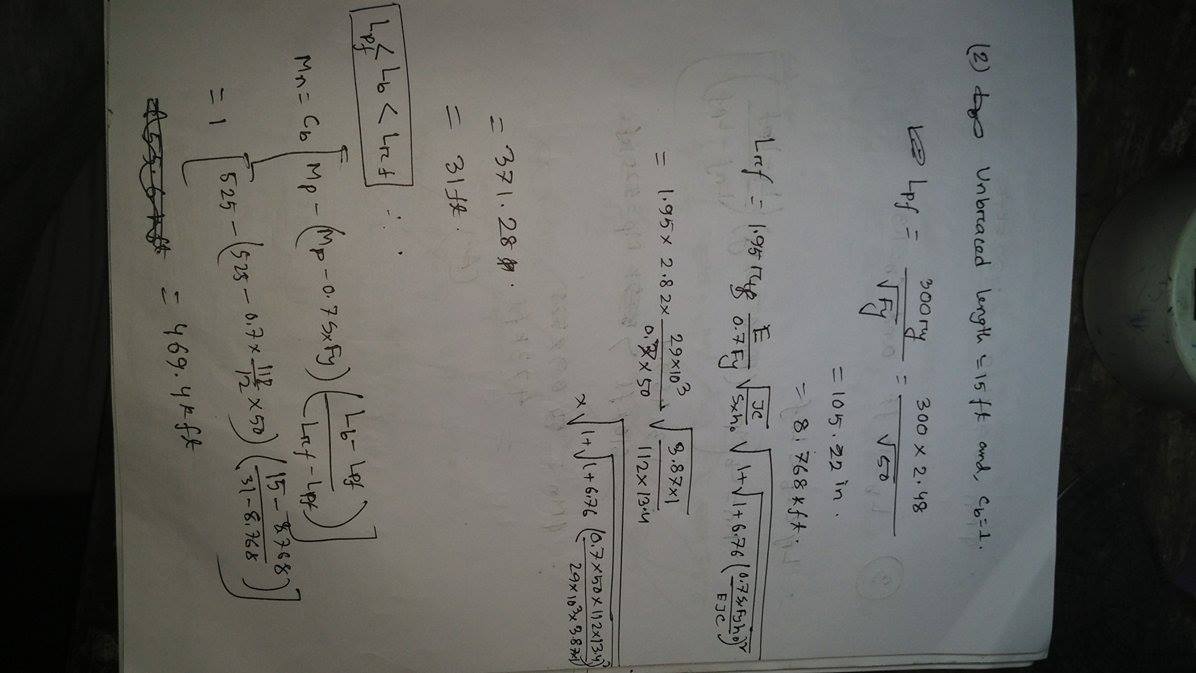 (2) Unbreaced length = 15 ft and, Cb=1.
Lpf = 300 ry / √Fy = 300 × 2.48 / √50
= 105.22 in.
= 8.768 ft.
Lrf = 1.95 rts E / 0.7Fy √(JC / Sxho) √(1+√(1+6.76 (0.7SxFyho / EJC)²))
= 1.95 × 2.82 × 29×10³ / 0.7×50 √(3.87×1 / 112×13.4)
× √(1+√(1+6.76 (0.7×50×112×13.4 / 29×10³×3.87×1)²))
= 371.28 in.
= 31 ft.
Lpf < Lb < Lrf ∴
Mn = Cb [Mp − (Mp − 0.7SxFy) (Lb − Lpf / Lrf − Lpf)]
= 1 [525 − (525 − 0.7 × 112/12 × 50) (15 − 8.768 / 31 − 8.768)]
= 469.4 k ft